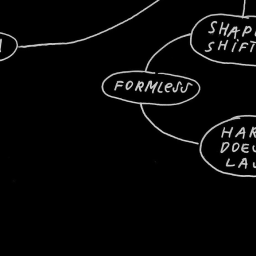 SHAP
SHIFT
FORMLESS
HAR
DOE
LA